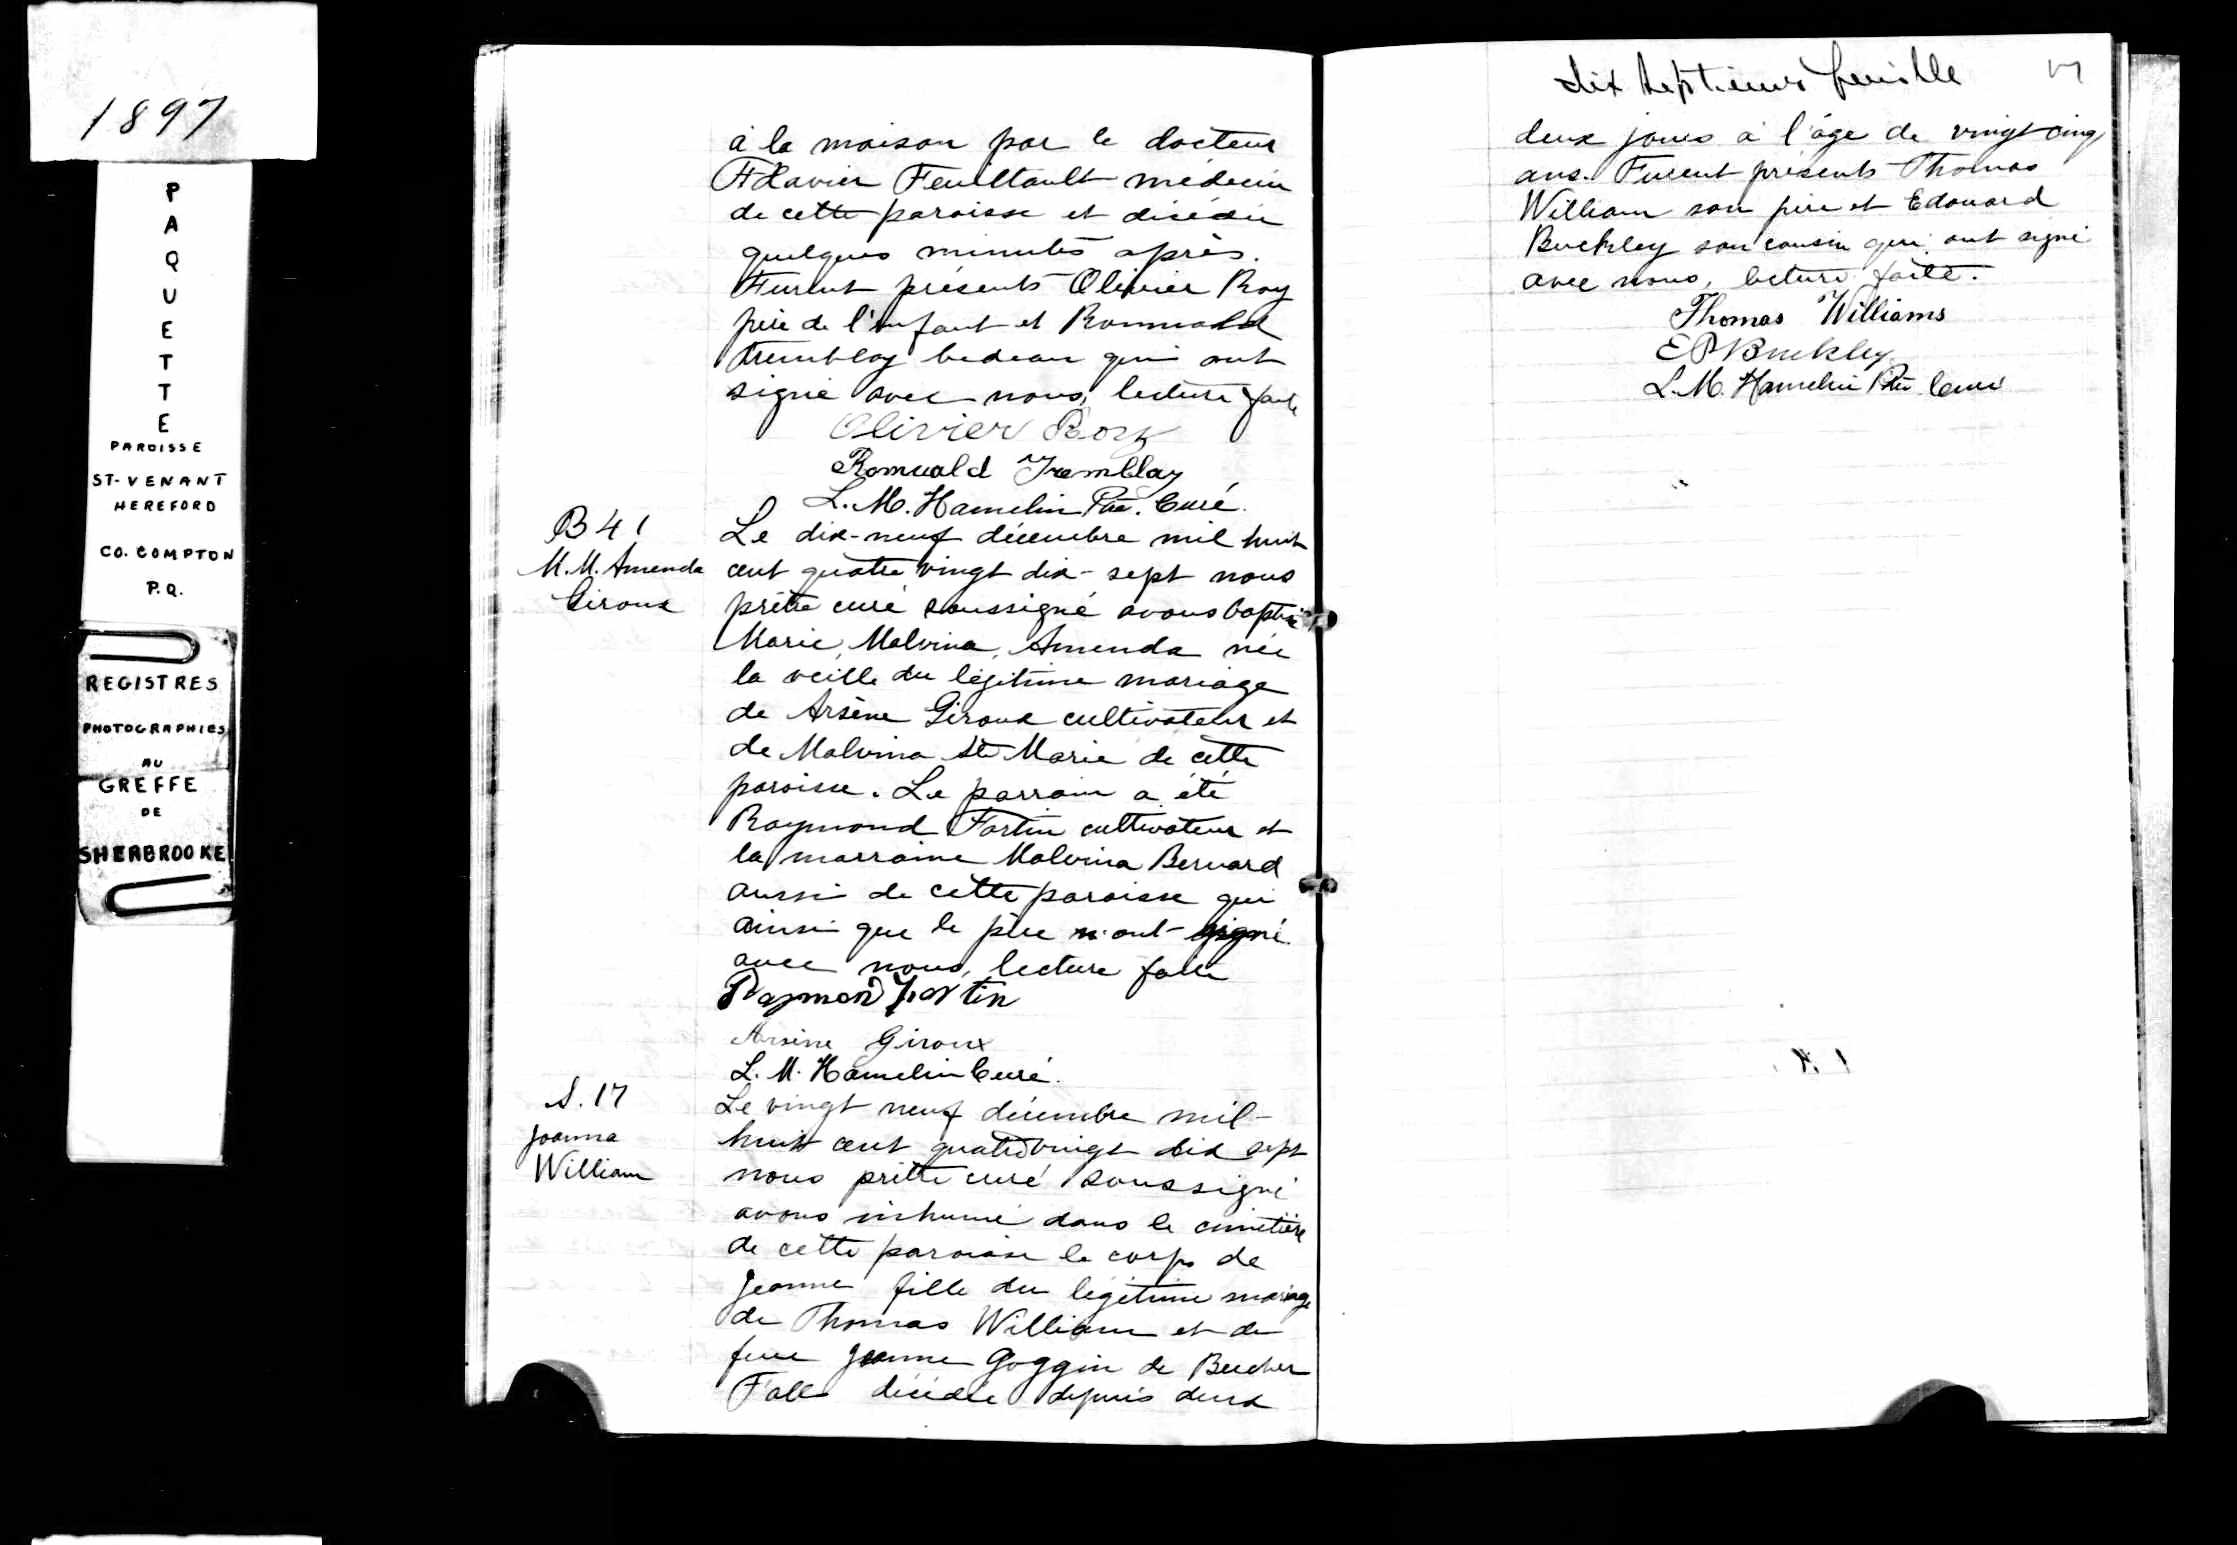 1897
P
A
Q
U
E
T
T
E
PAROISSE
ST-VENANT
HEREFORD
CO. COMPTON
P.Q.
REGISTRES
PHOTOGRAPHIES
AU
GREFFE
DE
SHERBROOKE
à la maison par le docteur
Feuillault médecin
de cette paroisse et décédée
quelques minutes après.
Furent présents Olivier Roy
père de l'enfant et Romuald
Tremblay bedeau qui ont
signé avec nous, lecture faite
Olivier Roy
Romuald Tremblay
L. M. Hamelin Ptre. Curé.
B 41
M. M. Amenda
Giroux
Le dix-neuf décembre mil huit
cent quatre vingt dix-sept nous
prêtre curé soussigné avons baptisé
Marie, Malvina, Amenda née
la veille du légitime mariage
de Arsène Giroux cultivateur et
de Malvina Ste Marie de cette
paroisse. Le parrain a été
Raymond Fortin cultivateur et
la marraine Malvina Bernard
aussi de cette paroisse qui
ainsi que le père ont signé
avec nous, lecture faite
Raymond Fortin
Arsène Giroux
L. M. Hamelin Curé.
S. 17
Joanna
William
Le vingt neuf décembre mil-
huit cent quatre vingt dix sept
nous prêtre curé soussigné
avons inhumé dans le cimetière
de cette paroisse le corps de
Jeanne fille du légitime mariage
de Thomas William et de
feue Jeanne Goggin de Beecher
Falls décédée depuis deux
dix septième feuille
17
deux jours à l'âge de vingt cinq
ans. Furent présents Thomas
William son père et Edouard
Buckley son cousin qui ont signé
avec nous, lecture faite.
Thomas Williams
E P Buckley
L. M. Hamelin Ptre Curé